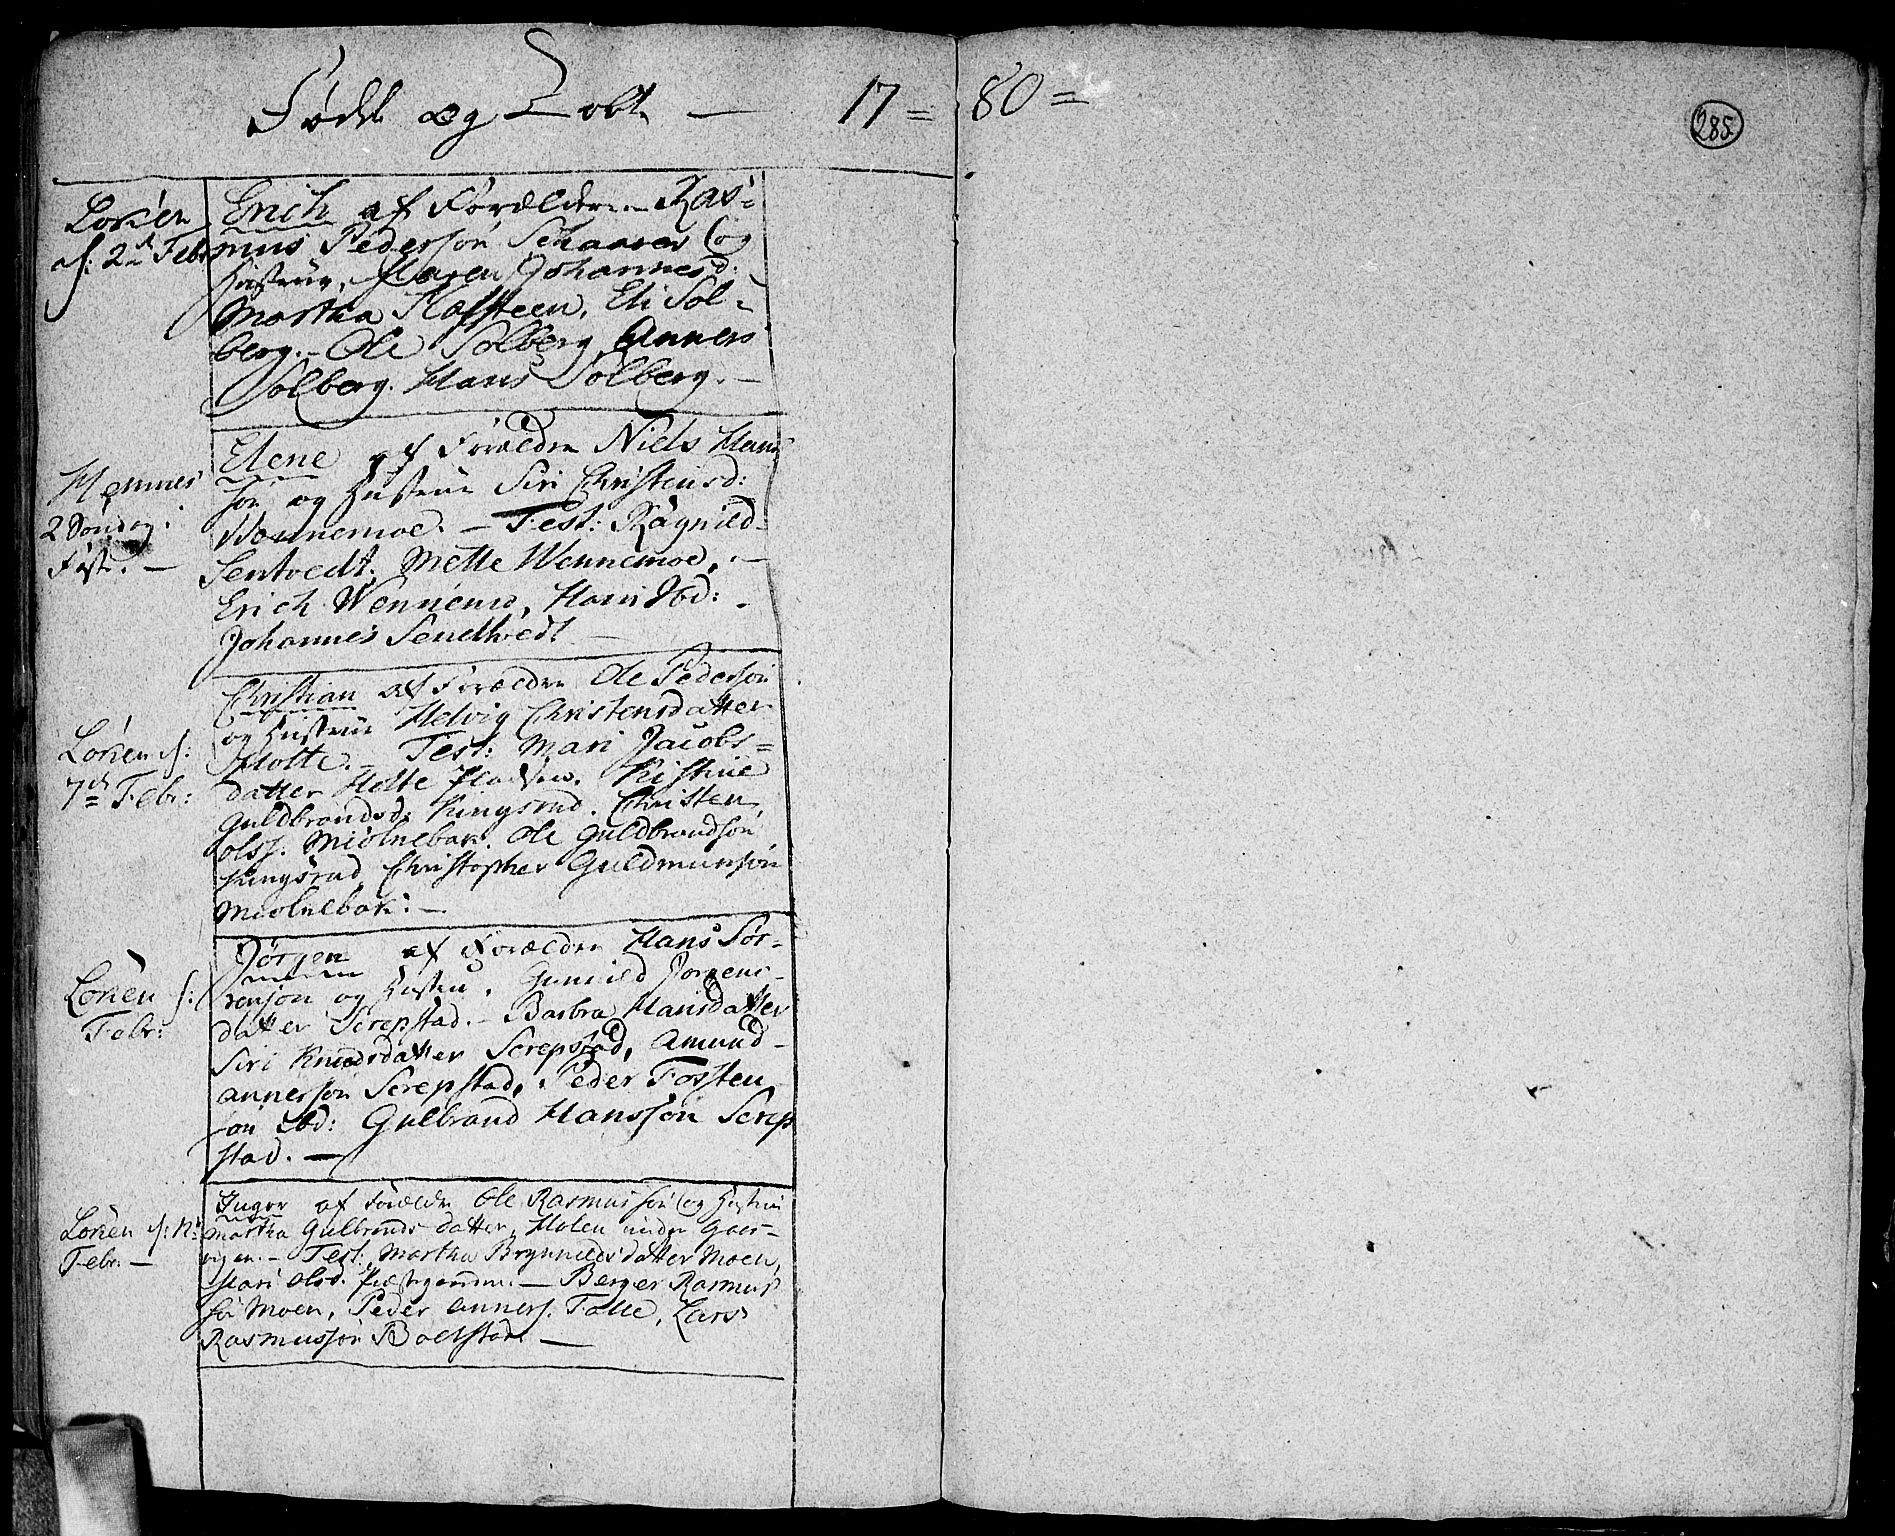 Født og Døbt — 17= 80=
285.
Lorien
d: 2den Febr
Erich af Forældrene Ras=
mus Pedersøn Schaarer og
Hustrue, Maren Johannesd:
Martha Kafsteen, Eli Sol=
berg. - Ole Solberg, Anners
Solberg. Hans Solberg. —
Hemnes
2 Søndag i
Faste. —
Elene af Forældre Niels Han
søn og Hustrue Siri Christensd:
Wennemoe. — Test: Ragnild
Sentvedt, Mette Wennemoe, —
Erich Wennemo, Hans Ibd:
Johannes Sendthvedt —
Lorien d:
7de Febr:
Christian af Forældre Ole Pedersøn
og Hustrue Helvig Christensdatter
Holte. — Test: Mari Jacobs=
datter Holte Kistine
Guldbrandsd: Kingsrud. Christen
Olss. Miølnebak. Ole Guldbrandsøn
Kingsrud, Christopher Guldmunsøn
Miølnebak: —
Lorien d:
Febr:
Jørgen af Forældre Hans Sør-
rensøn og Hustru, Gunild Jørgens-
datter Screpstad. — Barbra Hansdatter
Siri Knudsdatter Screpstad, Amund
Annersøn Screpstad, Peder Tosten
søn Ibd: Gulbrand Hanssøn Screp
stad. —
Lorien d:
Febr. —
Inger af Forældre Ole Rasmussøn og Hustrue
Martha Gulbrands datter, Holen under Gaar-
vigen. — Test: Martha Brynnilds datter Moen,
Mari Olsd. Præstegaarden. — Berger Rasmus
søn Moen, Peder Anners. Falle, Lars
Rasmussøn Bolstad. —